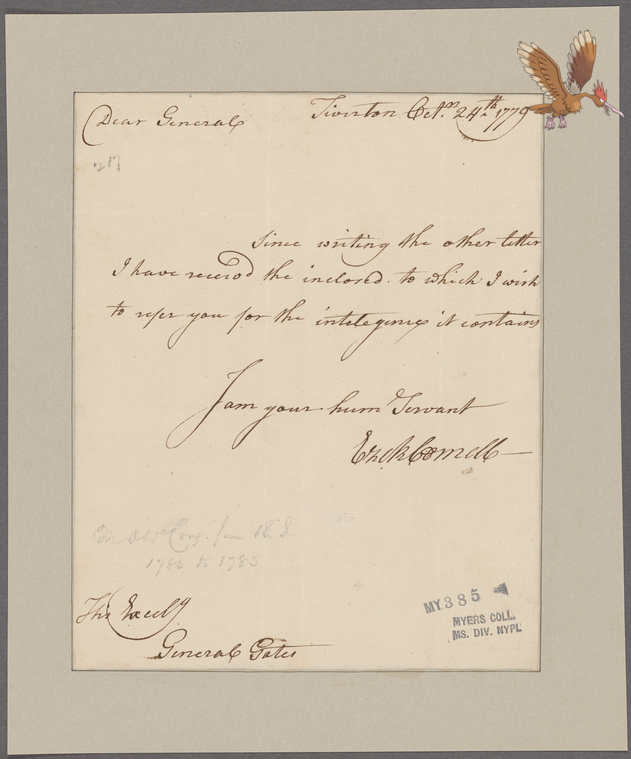 Dear General
Tiverton Octr. 24th 1779
Since writing the other letter
I have receivd the inclosed. to which I wish
to refer you for the intelegence it contains
I am your hum Servant
Ezek Cornell
Cong. from R.I.
1780 to 1783
His Excelly
General Gates
MY 385
MYERS COLL.
MS. DIV. NYPL